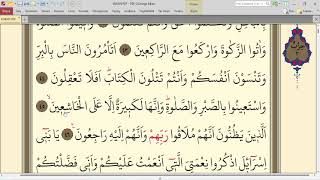 وَآتُوا الزَّكٰوةَ وَارْكَعُوا مَعَ الرَّاكِعِينَ ٤٣ أَتَأْمُرُونَ النَّاسَ بِالْبِرِّ
وَتَنْسَوْنَ أَنْفُسَكُمْ وَأَنْتُمْ تَتْلُونَ الْكِتَابَ أَفَلَا تَعْقِلُونَ ٤٤
وَاسْتَعِينُوا بِالصَّبْرِ وَالصَّلٰوةِ وَإِنَّهَا لَكَبِيرَةٌ إِلَّا عَلَى الْخَاشِعِينَ ٤٥
الَّذِينَ يَظُنُّونَ أَنَّهُمْ مُلَاقُوا رَبِّهِمْ وَأَنَّهُمْ إِلَيْهِ رَاجِعُونَ ٤٦ يَا بَنِي
إِسْرَائِلَ اذْكُرُوا نِعْمَتِيَ الَّتِي أَنْعَمْتُ عَلَيْكُمْ وَأَنِّي فَضَّلْتُكُمْ